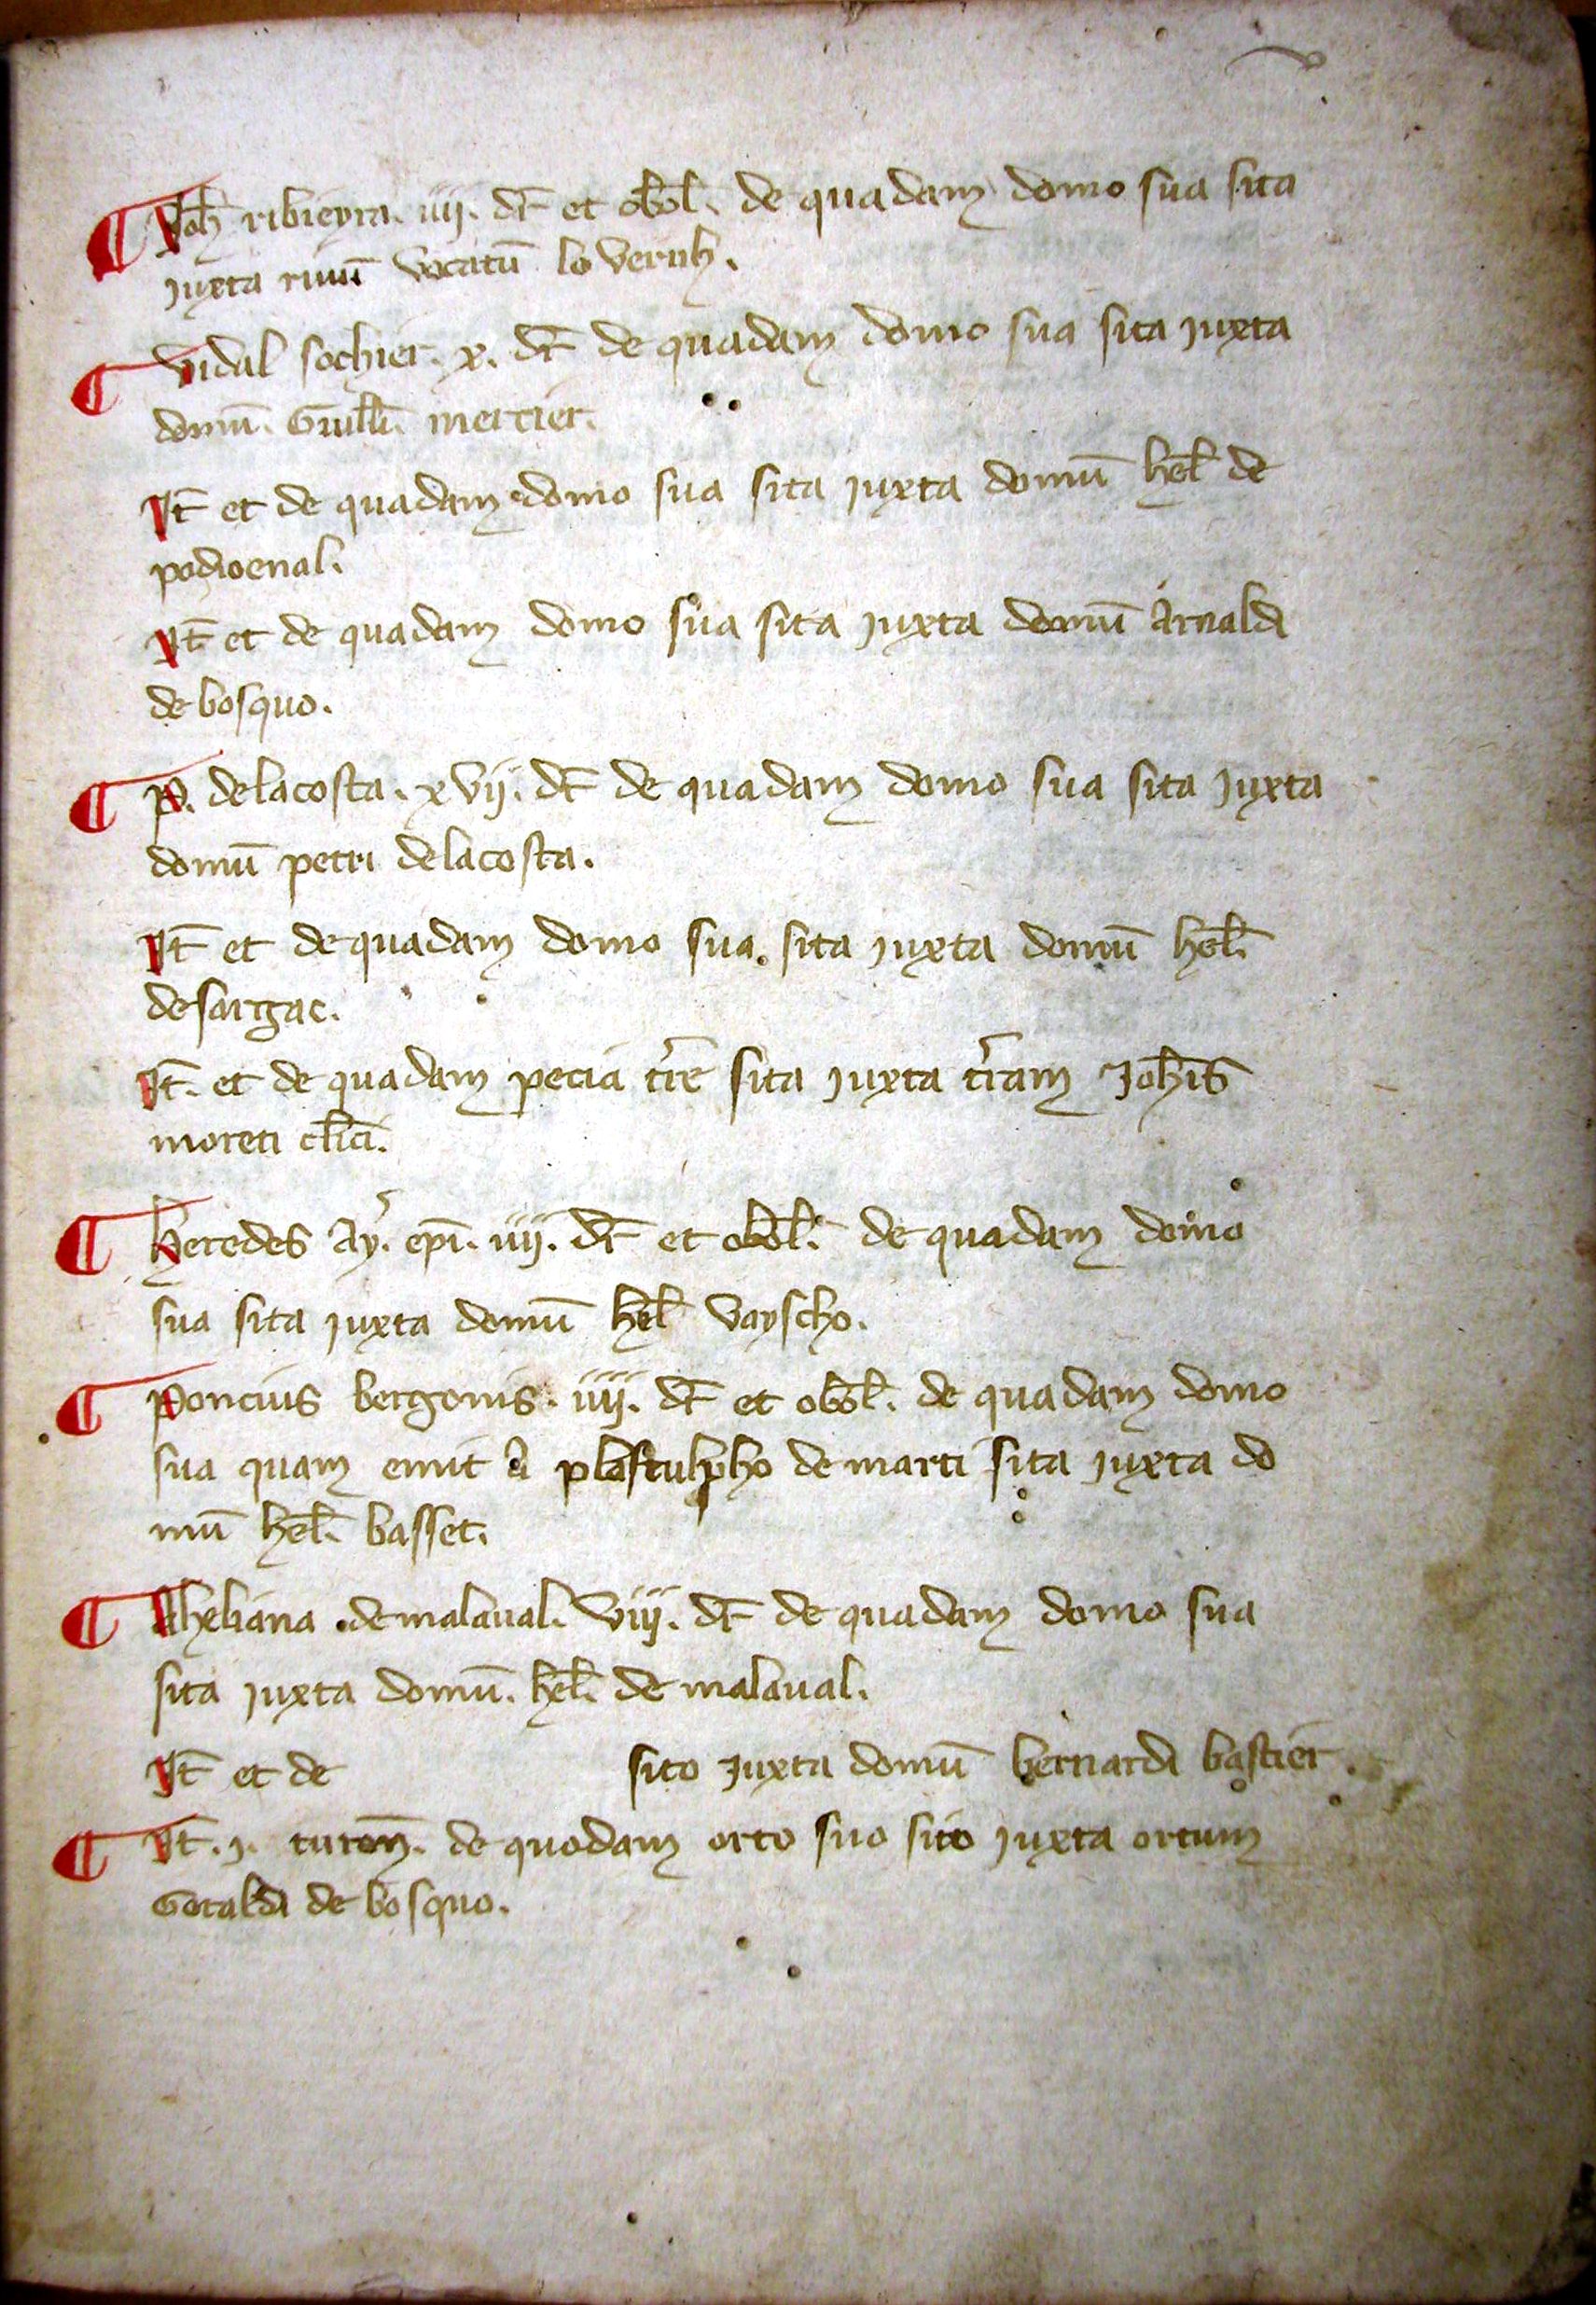 ¶ Joh̄ ribieyra. iiij. dr̄ et obol̄. de quadam domo sua sita
juxta riuū vocatū lo vernh.
¶ Vidal sochier. x. dr̄ de quadam domo sua sita juxta
domū. Guill̄i. mercier.
Jt̄ et de quadam domo sua sita juxta domū hel̄ de
podioenal.
Jt̄ et de quadam domo sua sita juxta domū Arnaldi
de bosquo.
¶ P. delacosta. xvij. dr̄ de quadam domo sua sita juxta
domū petri delacosta.
Jt̄ et de quadam domo sua. sita juxta domū hel̄.
desargac.
Jt̄. et de quadam pecia t̄re sita juxta t̄ram Joh̄is
moreti cl̄ici.
¶ Heredes Ay. ep̄i. iiij. dr̄ et obol̄. de quadam domo
sua sita juxta domū hel̄ vayscho.
¶ Poncius bergonis. iiij. dr̄ et obol̄. de quadam domo
sua quam emit a plastulpho de marti sita juxta do
mū hel̄. basset.
¶ Aheliana .demalaual. viij. dr̄ de quadam domo sua
sita juxta domū. hel̄. de malaual.
Jt̄ et de sito juxta domū bernardi bastier.
¶ Jt̄. j. turoñ. de quodam orto suo sito juxta ortum
Geraldi de bosquo.